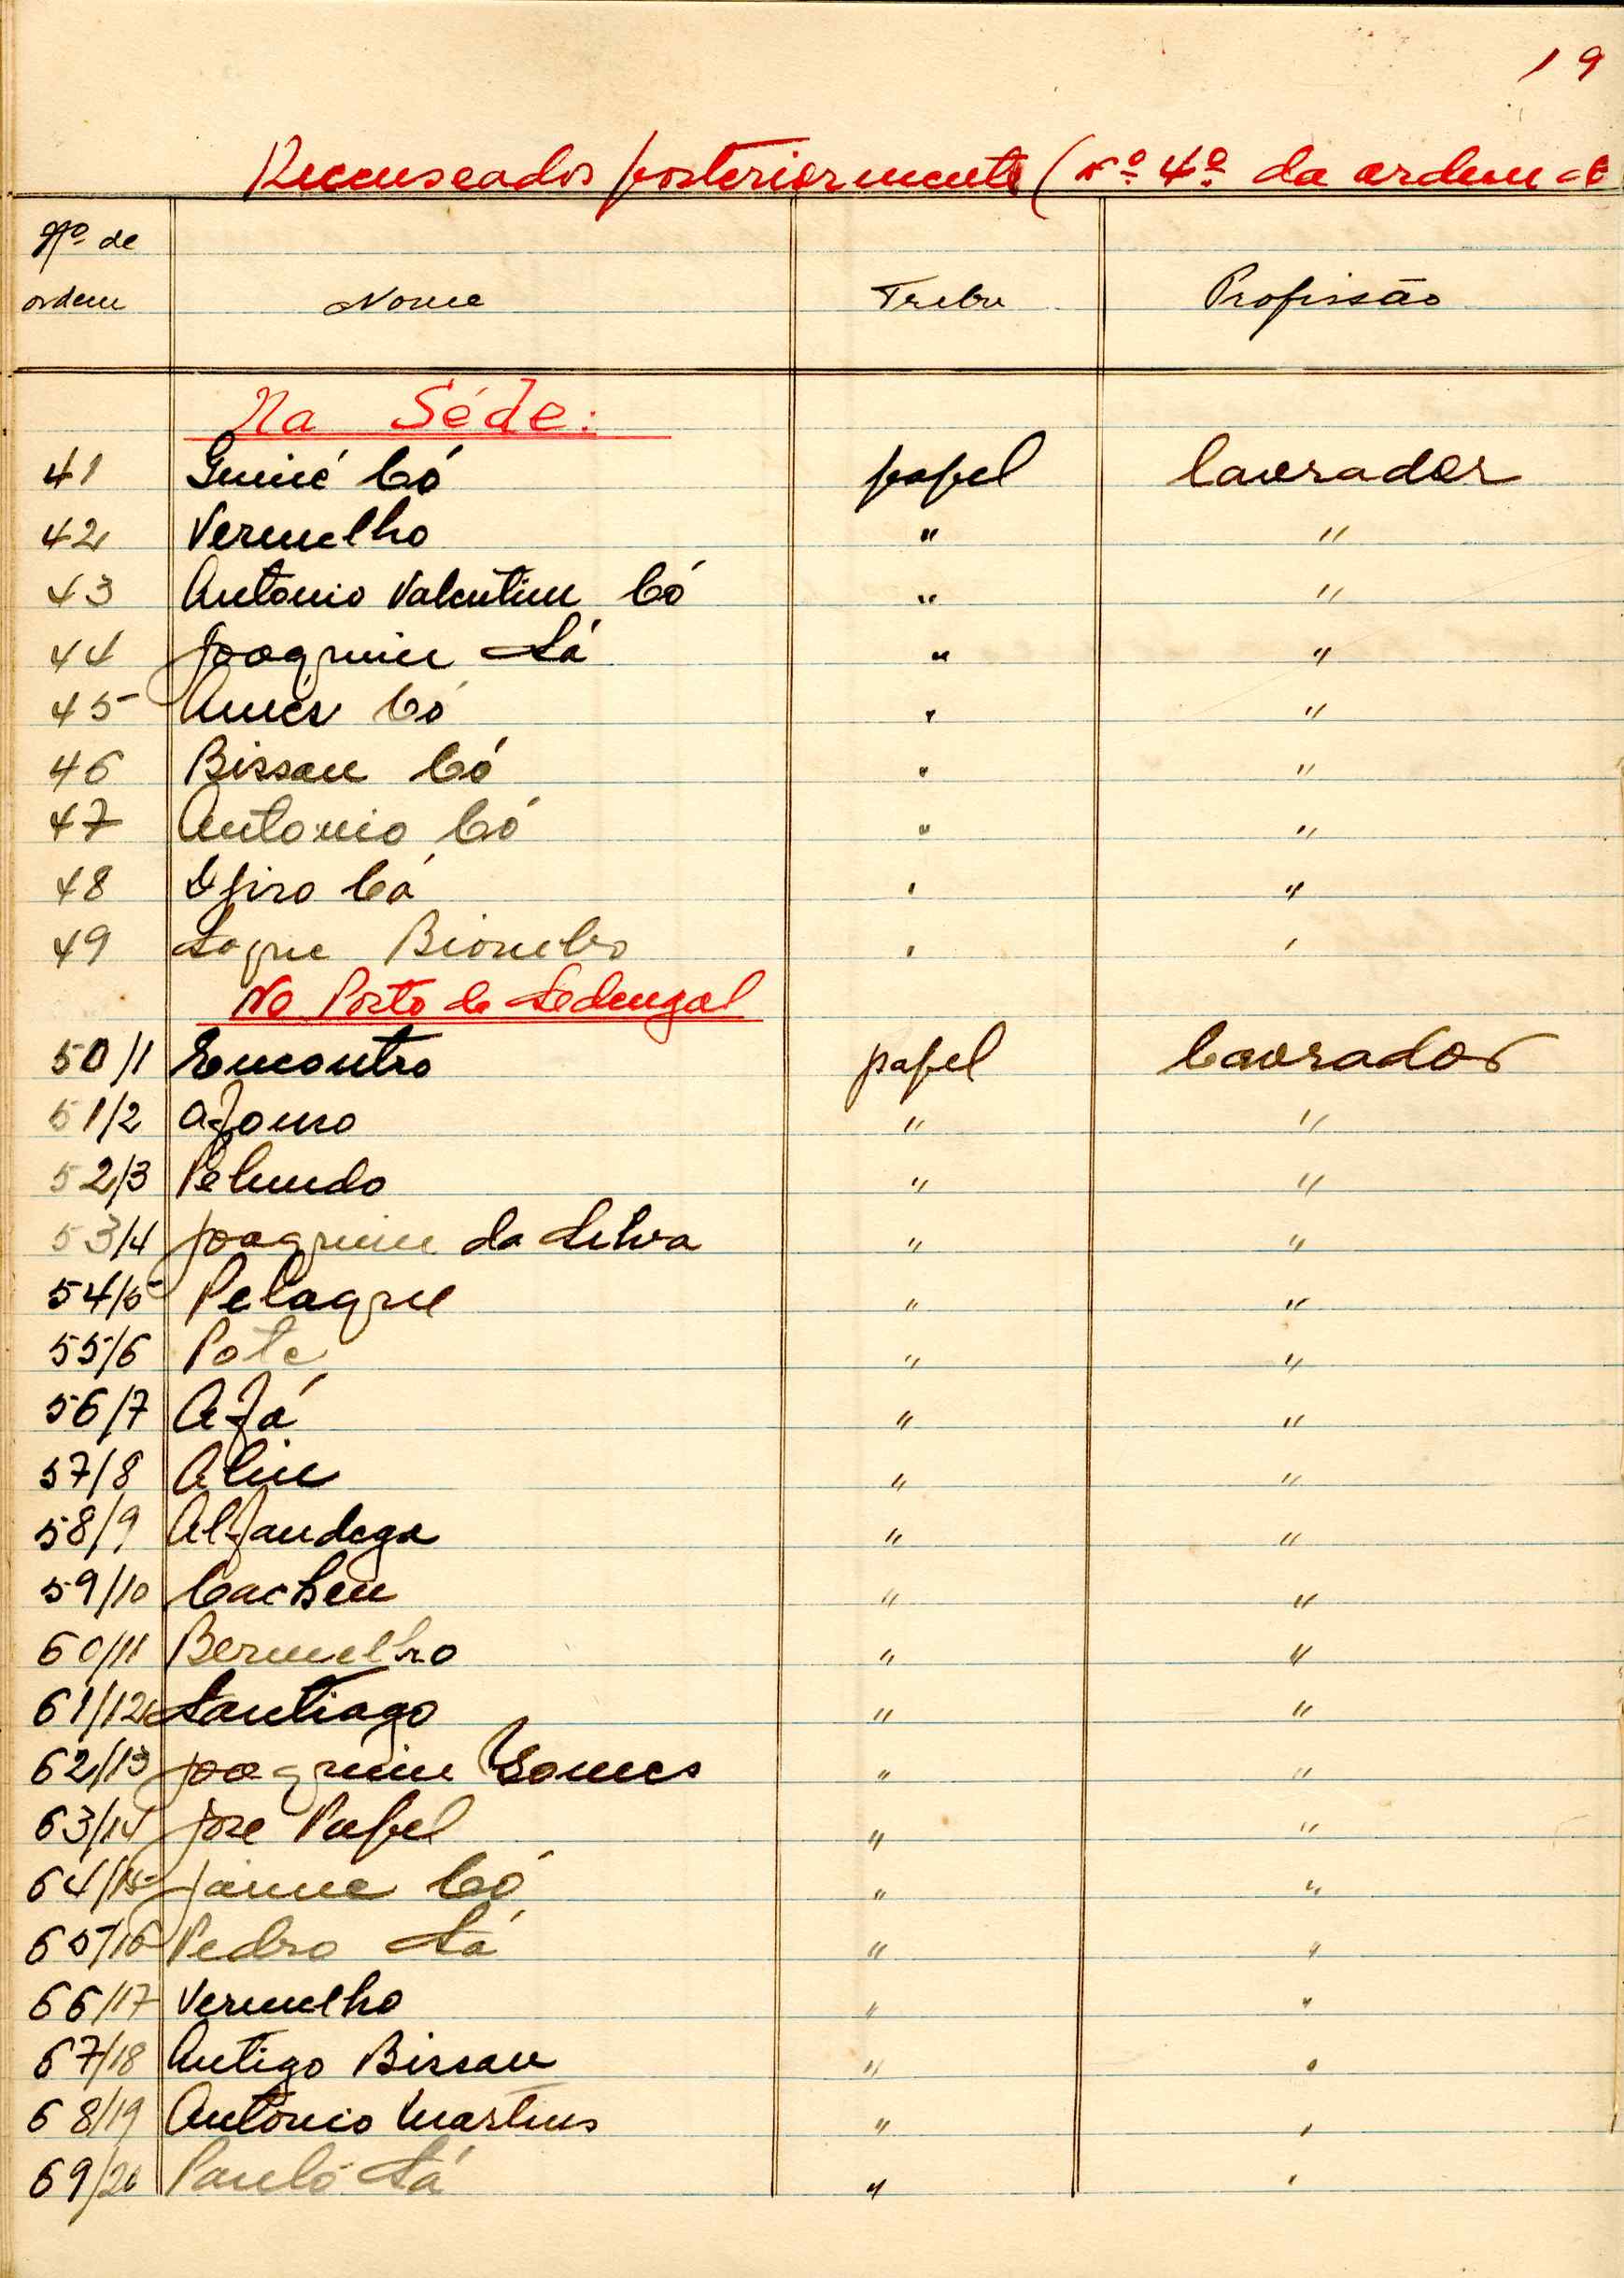 19
Recenseados posteriormente (nº 4º da ordem
Nº de
ordem Nome Tribu Profissão
Na Séde:
41 Có papel lavrador
42 Vermelho " "
43 Antonio Valentim Có " "
44 Joaquim Sá " "
45 Có " "
46 Bissau Có " "
47 Antonio Có " "
48 Cá " "
49 Biombo " "
No Posto de Sedengal
50/1 Encontro papel lavrador
51/2 Afonso " "
52/3 Pelundo " "
53/4 Joaquim da Silva " "
54/5 " "
55/6 Pote " "
56/7 Afá " "
57/8 " "
58/9 Alfandega " "
59/10 Cacheu " "
60/11 Bermelho " "
61/12 Santiago " "
62/13 Joaquim Gomes " "
63/14 Jose Papel " "
64/15 Jaime Có " "
65/16 Pedro Sá " "
66/17 Vermelho " "
67/18 Antigo Bissau " "
68/19 António Martins " "
69/20 Paulo Sá " "